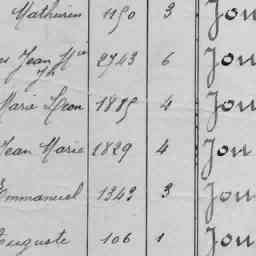 Mathurin 1190 3 Jou
Jean Mie 2743 6 Jou
Marie Léon 1885 4 Jou
Jean Marie 1829 4 Jou
Emmanuel 1343 3 Jou
Auguste 106 1 Jou